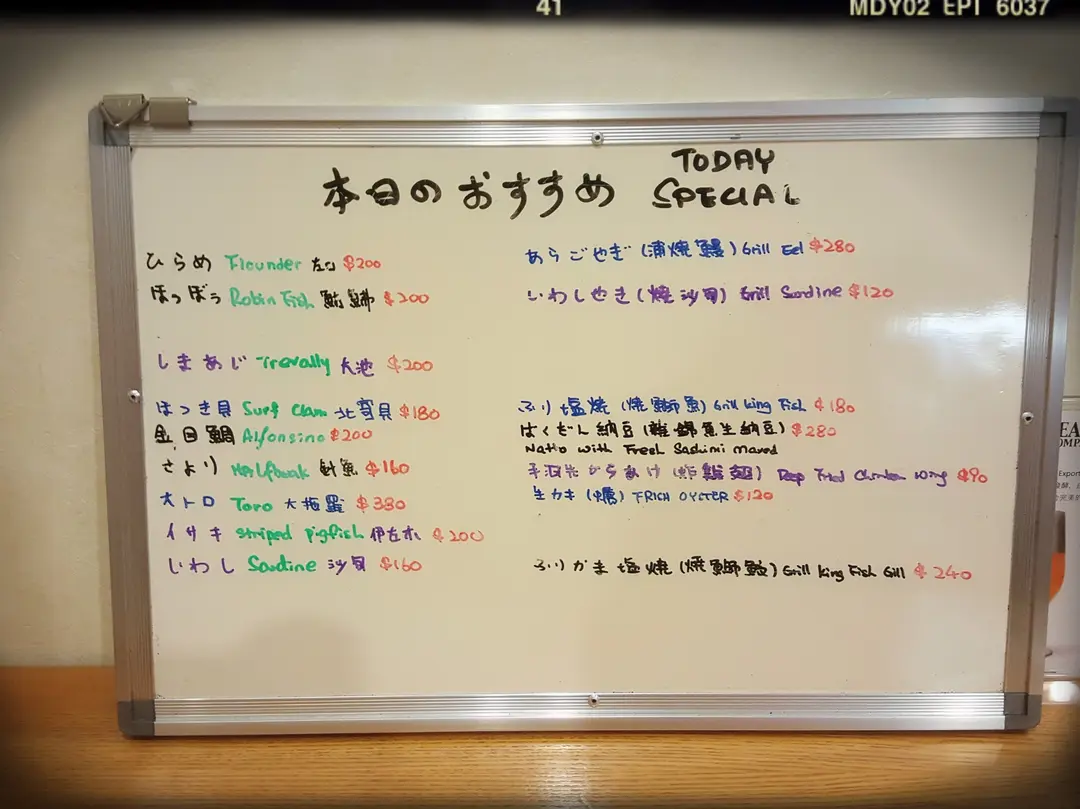 41 MDY02 EPI 6037
本日のおすすめ TODAY SPECIAL
ひらめ Flounder 左口 $200
ほうぼう Robin Fish $200
しまあじ Trevally 大池 $200
ほっき貝 Surf Clam 北寄貝 $180
金目鯛 Alfonsino $200
さより 魚 $160
大トロ Toro 大拖羅 $380
イサキ striped pigfish 伊左木 $200
いわし Sardine 沙甸 $160
あらごやき (蒲燒鰻) Grill Eel $280
いわしやき (燒沙甸) Grill Sardine $120
ふり塩焼 (燒鰤魚) Grill King Fish $180
ばくだん納豆 (雜錦魚生納豆) $280
Natto with Fresh Sashimi
からあげ Deep Fried Wing $90
生カキ (蠔) OYSTER $120
ふりかま塩焼 (燒鰤鮫) Grill King Fish Gill $240